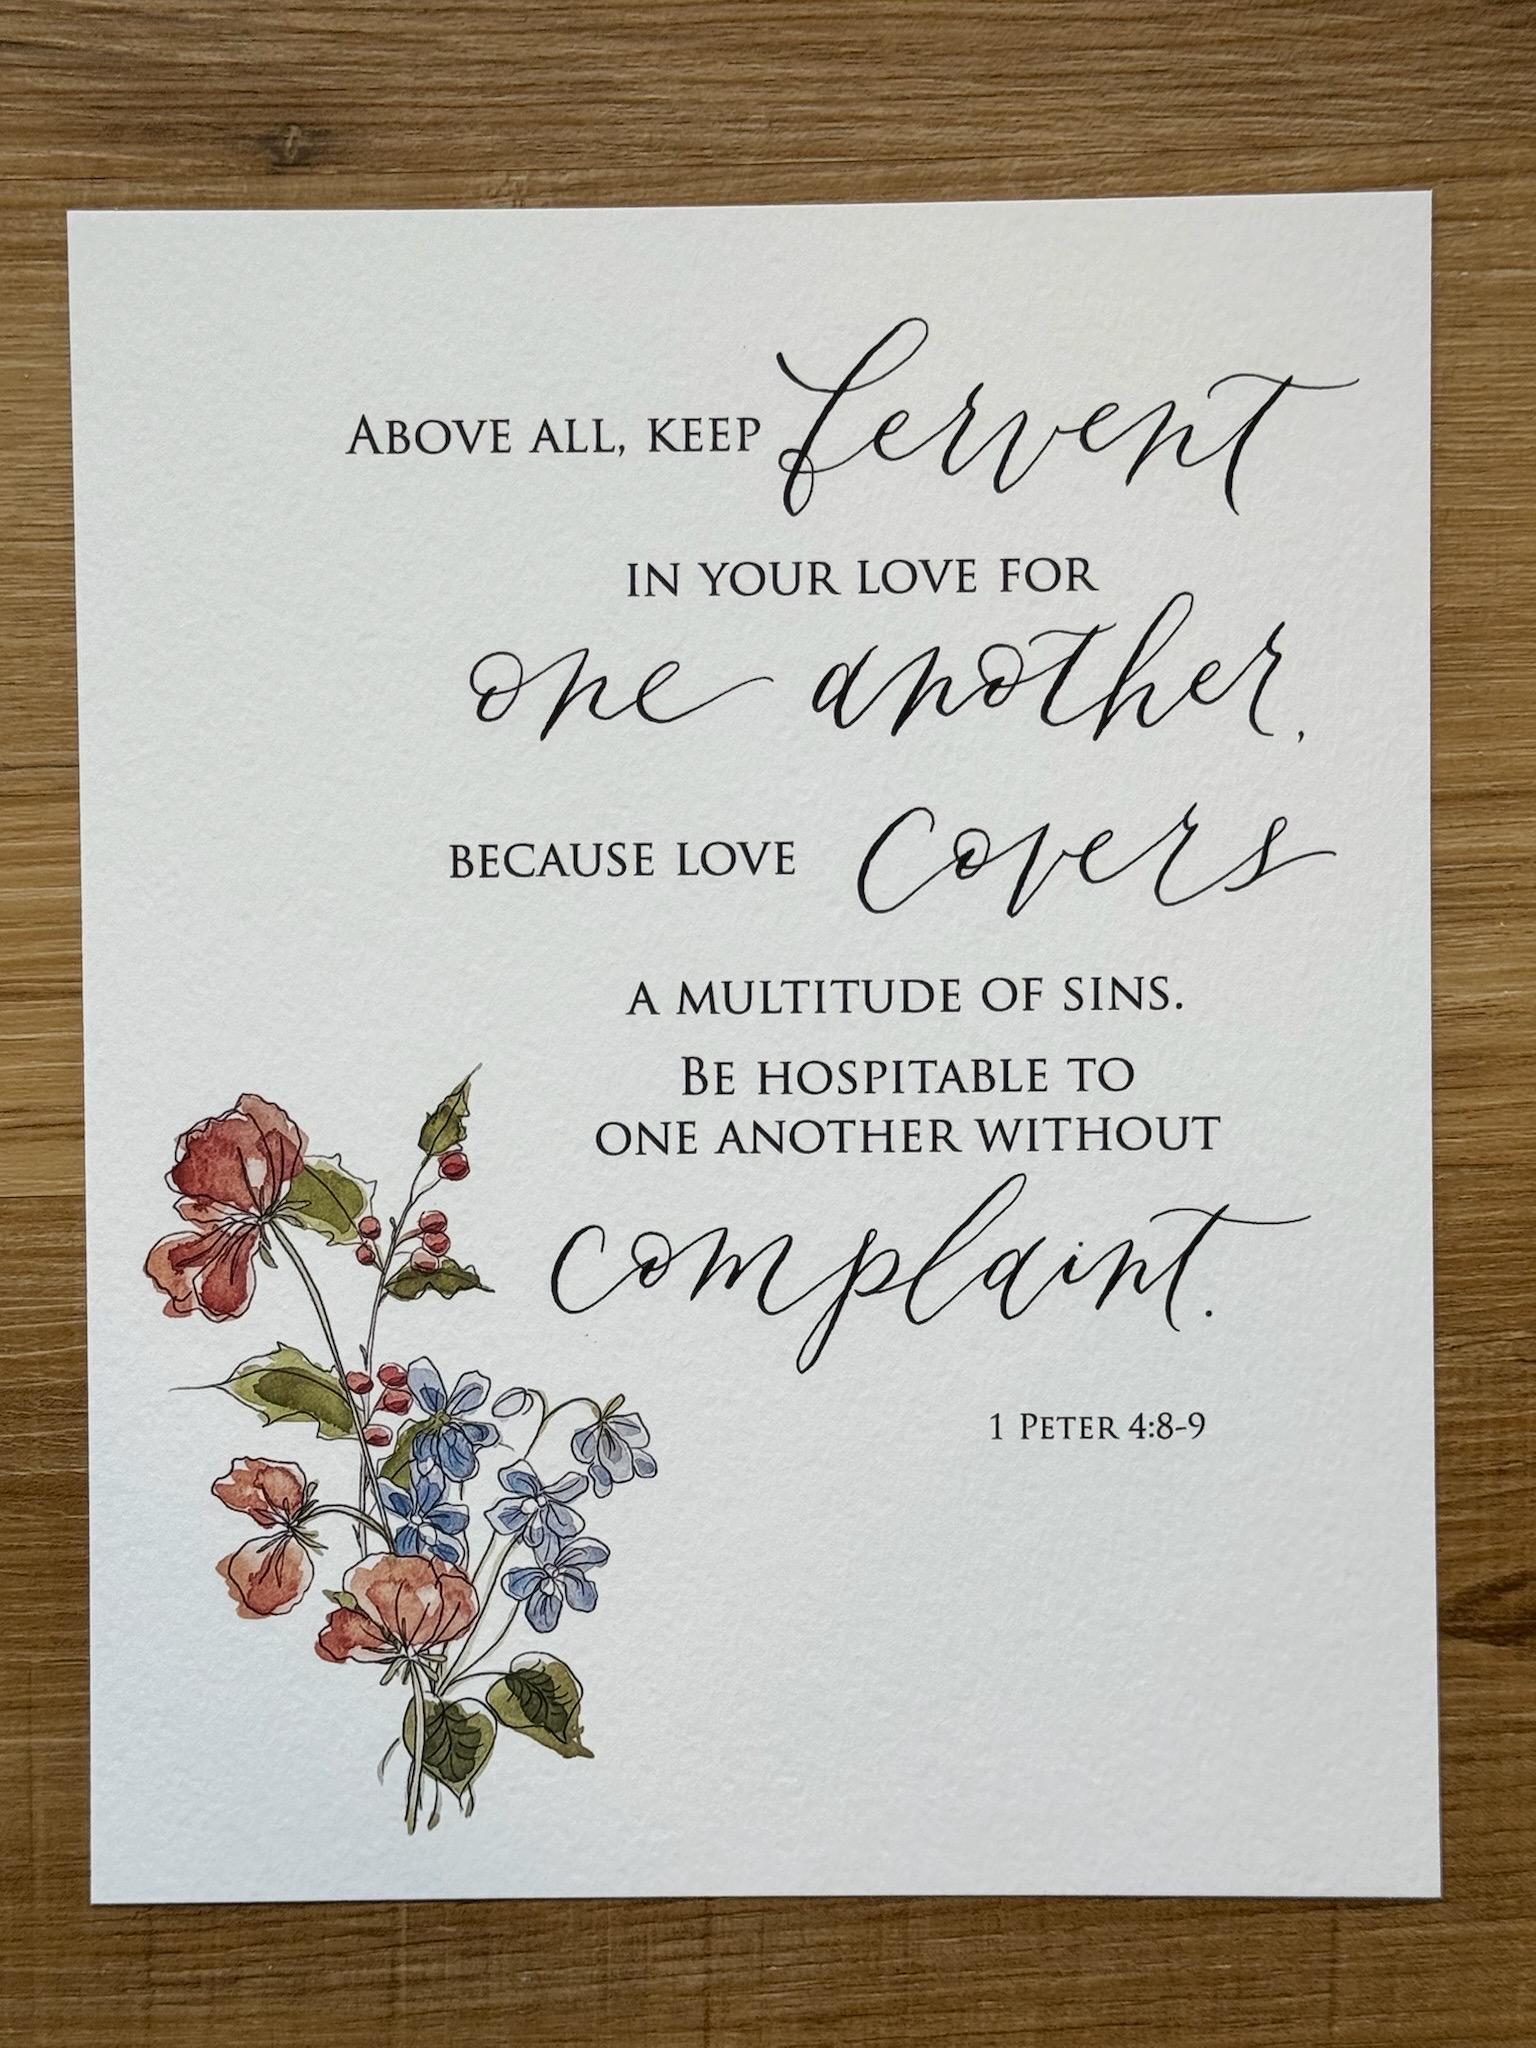 Above all, keep fervent
in your love for
one another,
because love covers
a multitude of sins.
Be hospitable to
one another without
complaint.
1 Peter 4:8-9